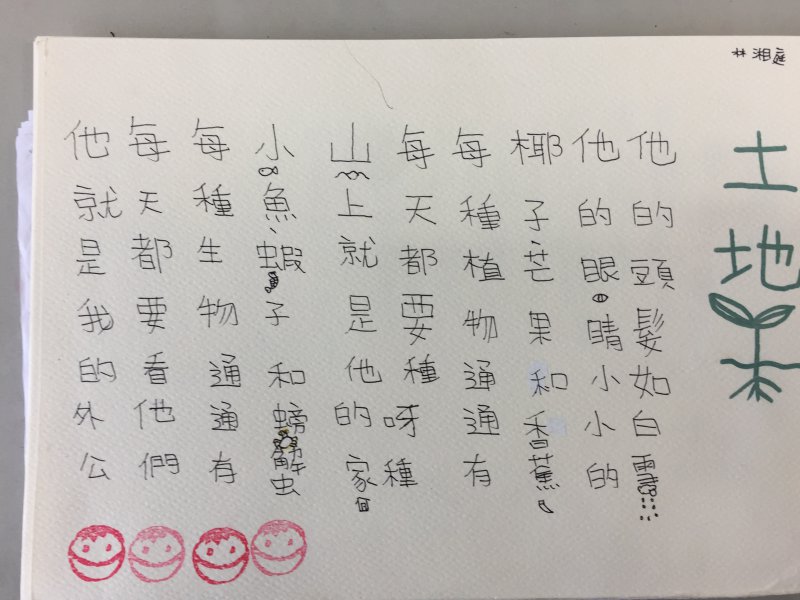 林湘庭
土地
他的頭髮如白雪
他的眼睛小小的
椰子、芒果和香蕉
每種植物通通有
每天都要種呀種
山上就是他的家
小魚、蝦子和螃蟹
每種生物通通有
每天都要看他們
他就是我的外公